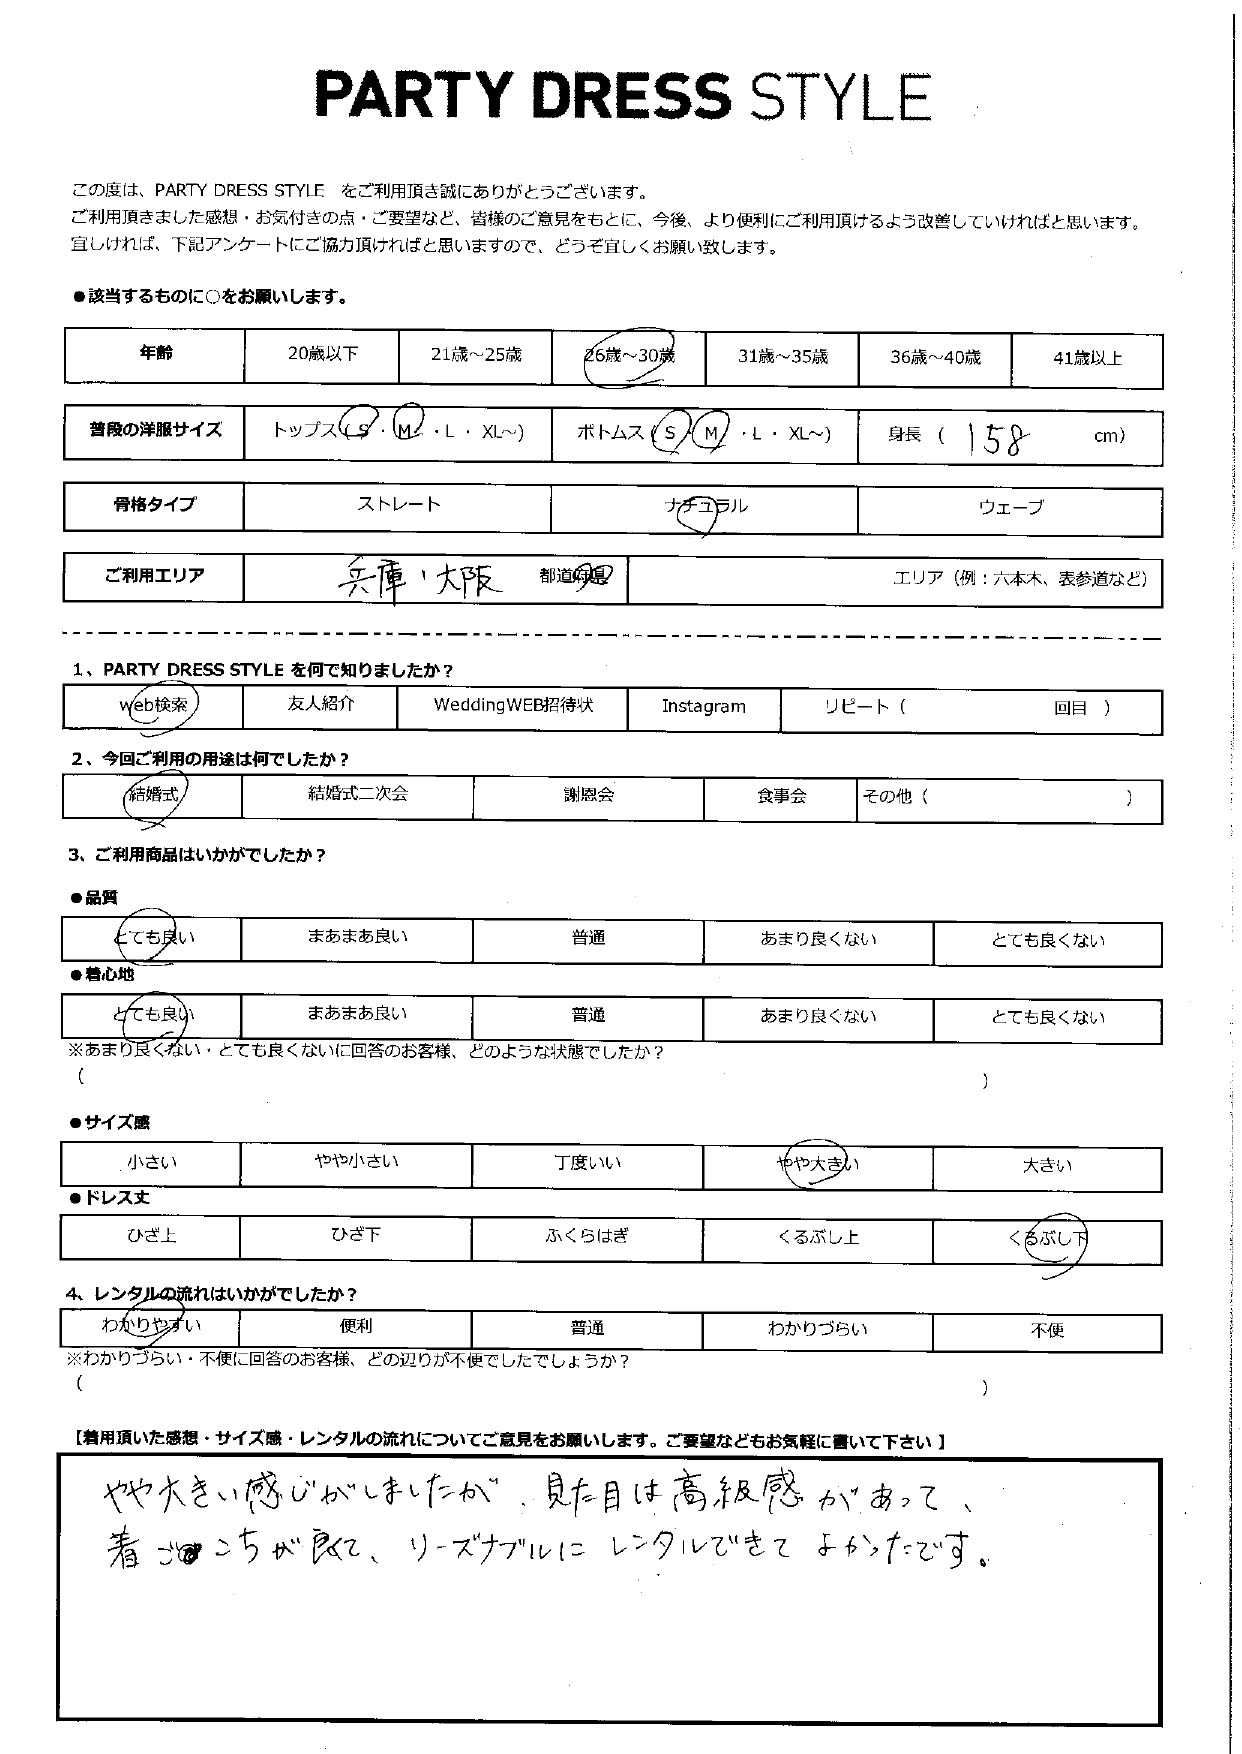 PARTY DRESS STYLE
この度は、PARTY DRESS STYLE をご利用頂き誠にありがとうございます。
ご利用頂きました感想・お気付きの点・ご要望など、皆様のご意見をもとに、今後、より便利にご利用頂けるよう改善していければと思います。
宜しければ、下記アンケートにご協力頂ければと思いますので、どうぞ宜しくお願い致します。
●該当するものに○をお願いします。
年齢 20歳以下 21歳～25歳 26歳～30歳 31歳～35歳 36歳～40歳 41歳以上
普段の洋服サイズ トップス（S・M・L・XL～) ボトムス（S・M・L・XL～) 身長（158 cm）
骨格タイプ ストレート ナチュラル ウェーブ
ご利用エリア 兵庫・大阪 都道府県 エリア（例：六本木、表参道など）
1、PARTY DRESS STYLE を何で知りましたか？
web検索 友人紹介 WeddingWEB招待状 Instagram リピート（ 回目 ）
2、今回ご利用の用途は何でしたか？
結婚式 結婚式二次会 謝恩会 食事会 その他（ ）
3、ご利用商品はいかがでしたか？
●品質
とても良い まあまあ良い 普通 あまり良くない とても良くない
●着心地
とても良い まあまあ良い 普通 あまり良くない とても良くない
※あまり良くない・とても良くないに回答のお客様、どのような状態でしたか？
（ ）
●サイズ感
小さい やや小さい 丁度いい やや大きい 大きい
●ドレス丈
ひざ上 ひざ下 ふくらはぎ くるぶし上 くるぶし下
4、レンタルの流れはいかがでしたか？
わかりやすい 便利 普通 わかりづらい 不便
※わかりづらい・不便に回答のお客様、どの辺りが不便でしたでしょうか？
（ ）
【着用頂いた感想・サイズ感・レンタルの流れについてご意見をお願いします。ご要望などもお気軽に書いて下さい】
やや大きい感じがしましたが、見た目は高級感があって、
着ごこちが良くて、リーズナブルにレンタルできてよかったです。